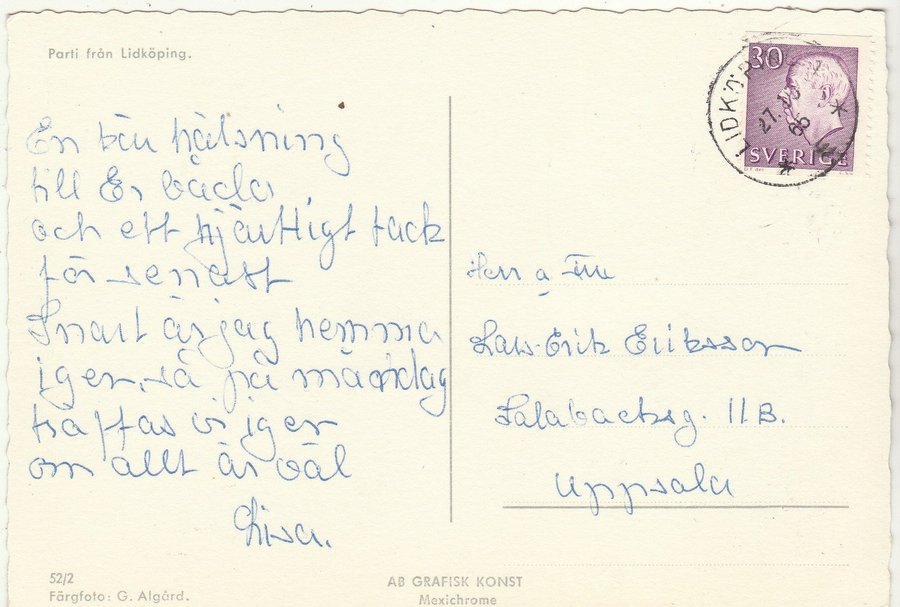 Parti från Lidköping.
En bön hälsning
till Er båda
och ett hjärtligt tack
för senast
Snart är jag hemma
igen, så på måndag
träffas vi igen
om allt är väl
Lisa.
52/2
Färgfoto: G. Algård.
AB GRAFISK KONST
Mexichrome
30
SVERIGE
LIDKÖPING
27.
66
Herr a Fru
Lars-Erik Eriksson
Salabacksg. 11B.
Uppsala